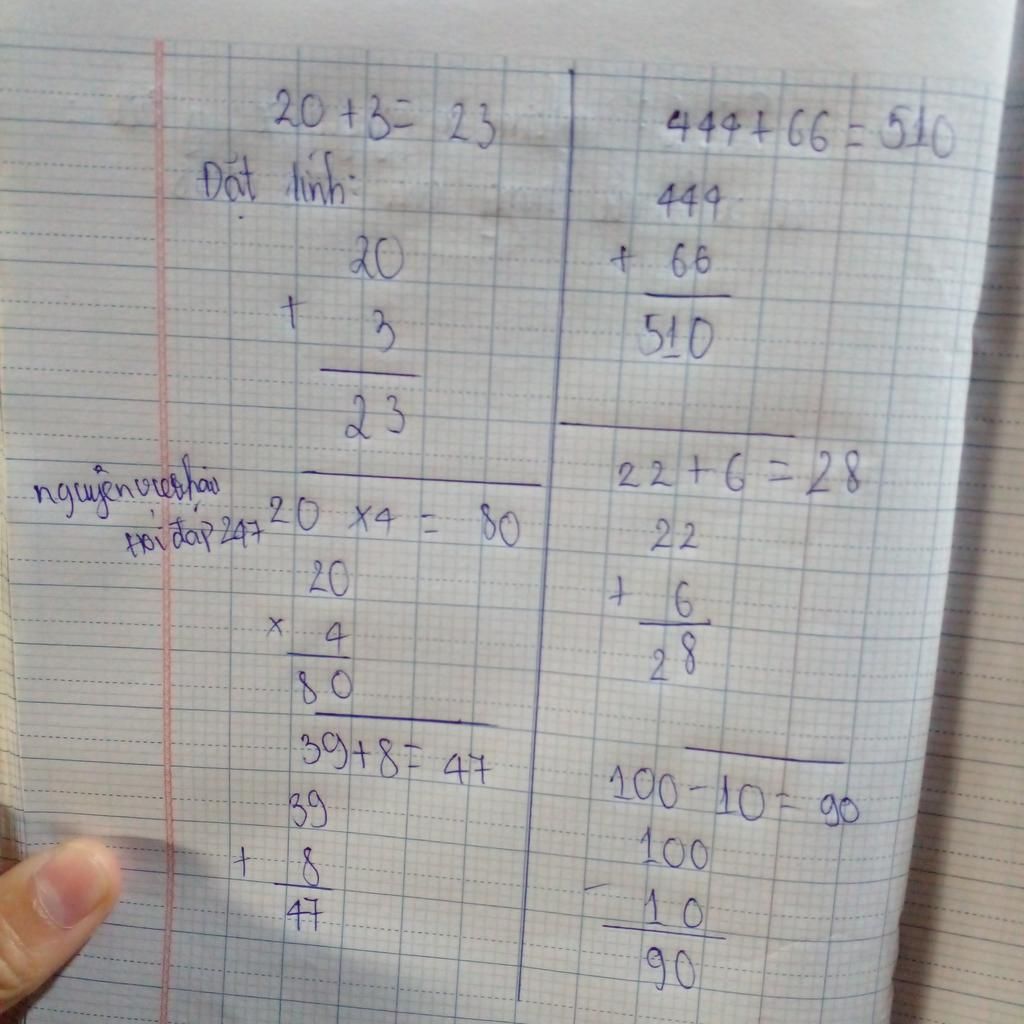 20 + 3 = 23
Đặt tính:
20
+ 3
23
20 x 4 = 80
20
x 4
80
39 + 8 = 47
39
+ 8
47
nguyễn
hỏi đáp 247
444 + 66 = 510
444
+ 66
510
22 + 6 = 28
22
+ 6
28
100 - 10 = 90
100
- 10
90